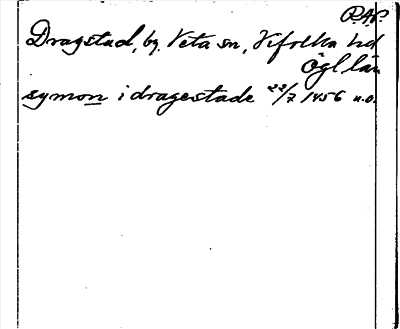 RAP.
Dragstad, by. Veta sn, Vifolka hd
Ögl län
symon i dragestade 22/7 1456 u.o.